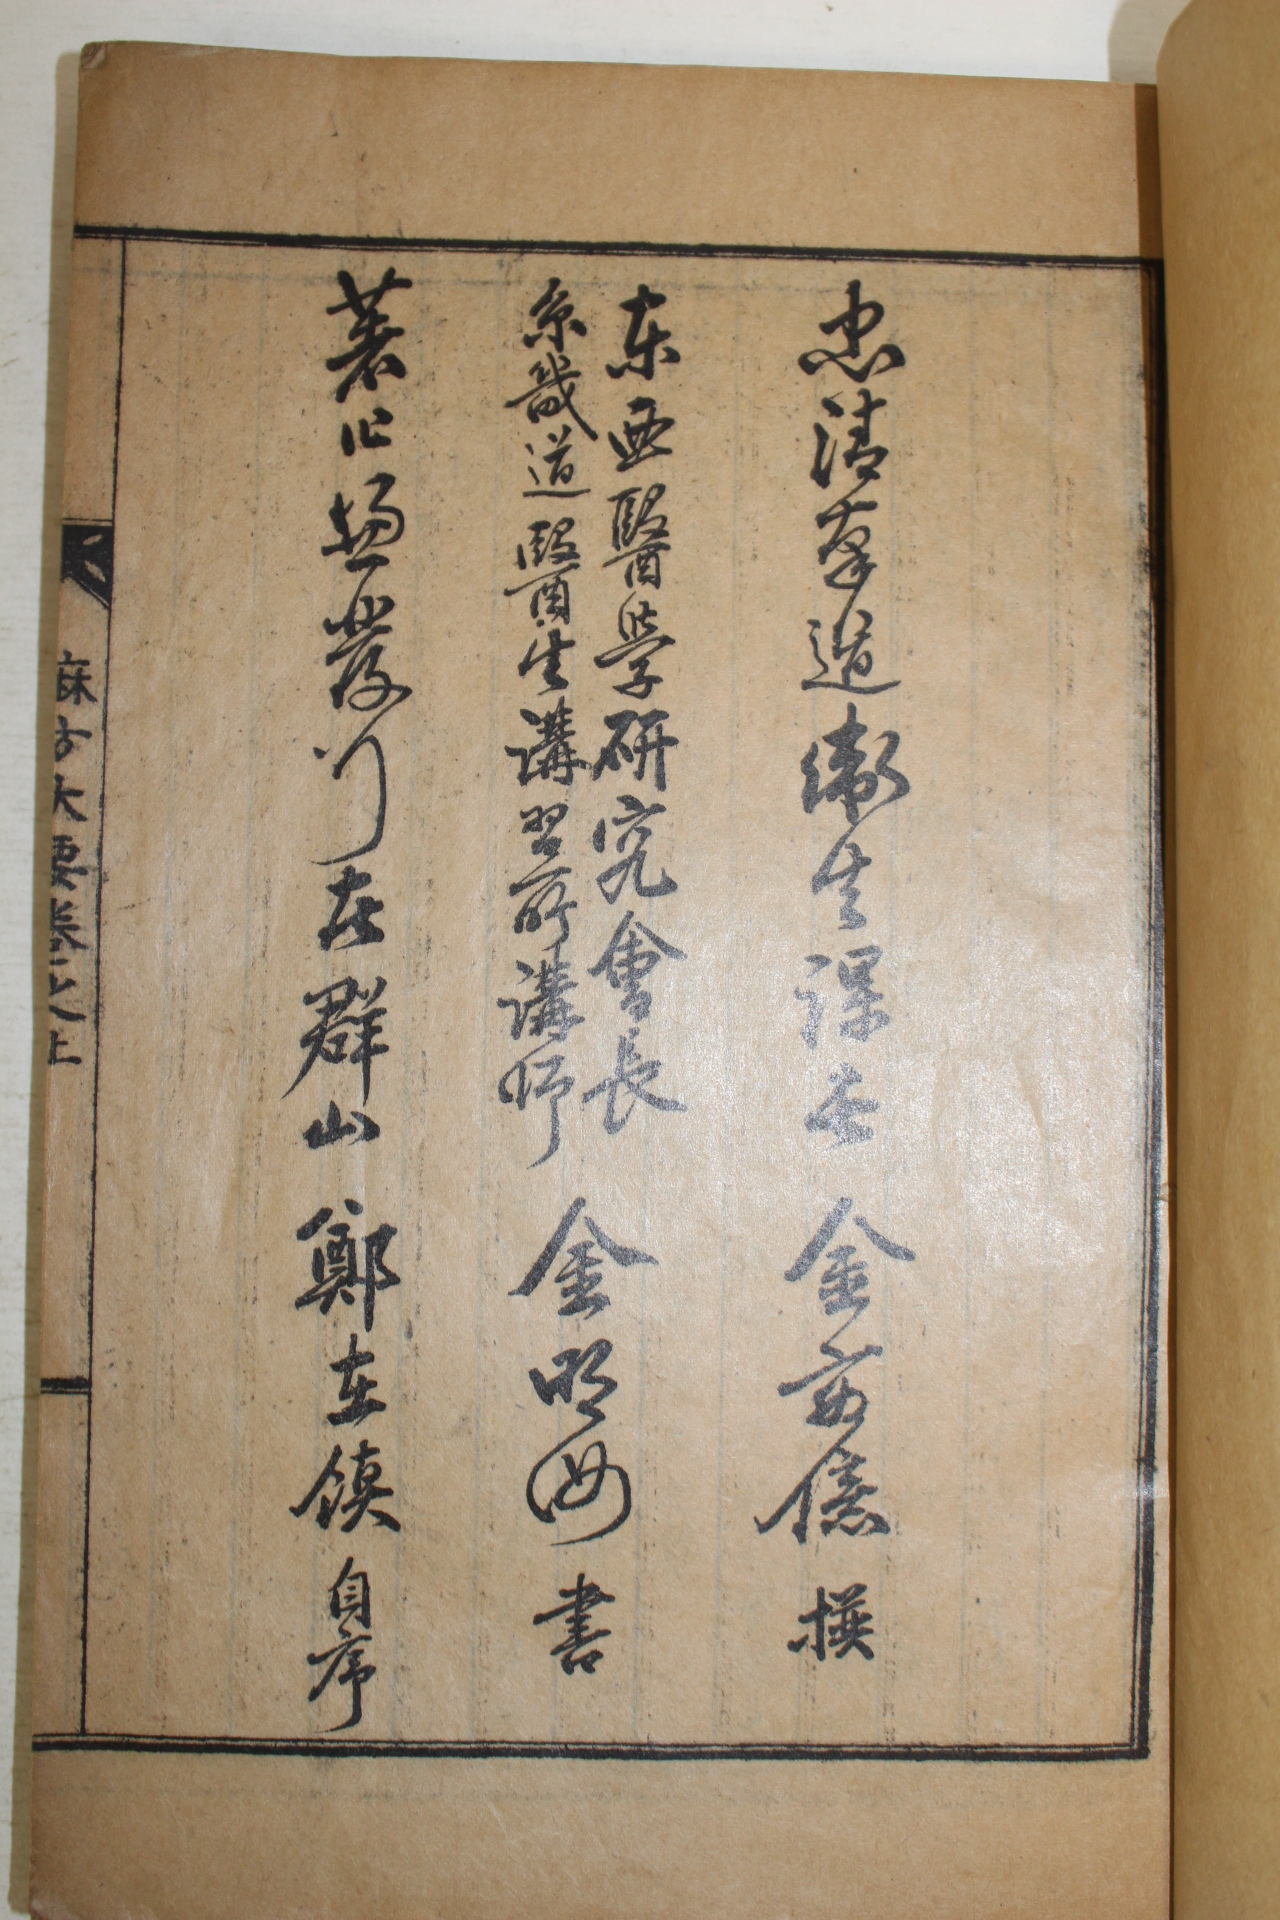 忠清南道衛生課長 金億 撰
東西醫學研究會長
京畿道醫生講習所講師 金明汝 書
著作兼發行 在群山 鄭在鏌 自序
麻方大要卷之上